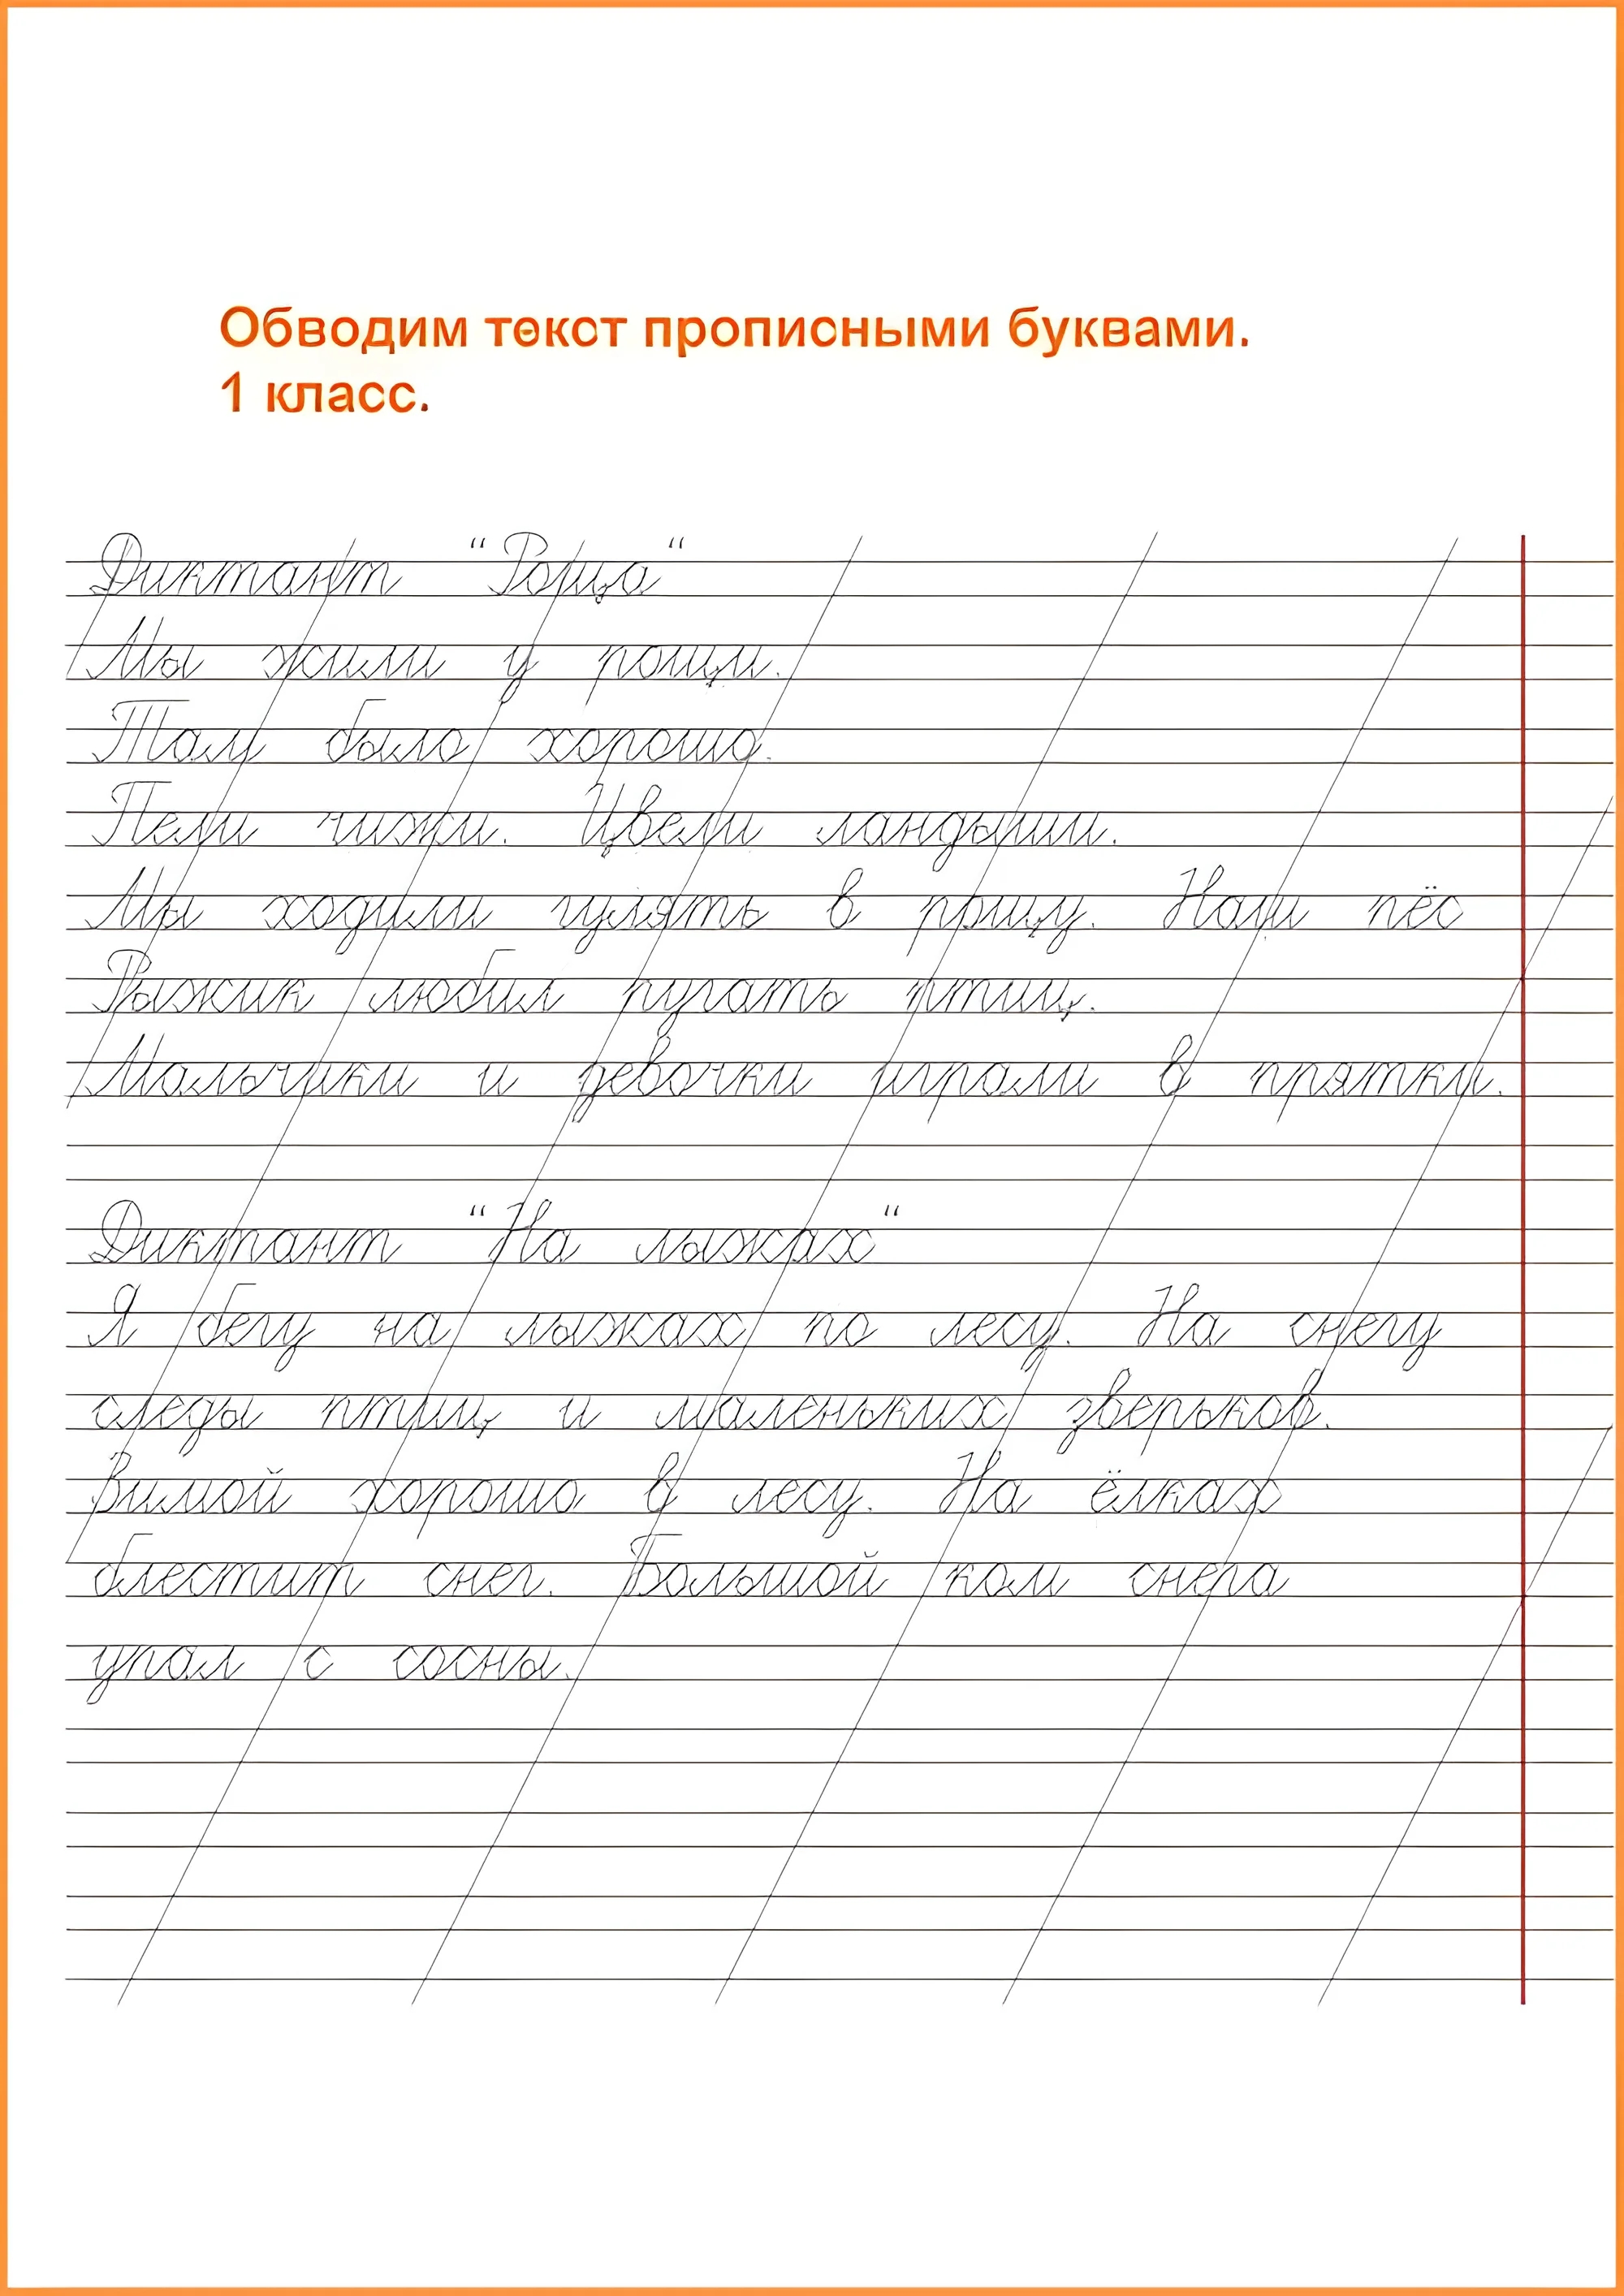 Обводим текст прописными буквами.
1 класс.
Диктант "Роща"
Мы жили у рощи.
Там было хорошо.
Пели чижи. Цвели ландыши.
Мы ходили гулять в рощу. Наш пёс
Рыжик любил пугать птиц.
Мальчики и девочки играли в прятки.
Диктант "На лыжах"
Я бегу на лыжах по лесу. На снегу
следы птиц и маленьких зверьков.
Зимой хорошо в лесу. На ёлках
блестит снег. Большой ком снега
упал с сосны.